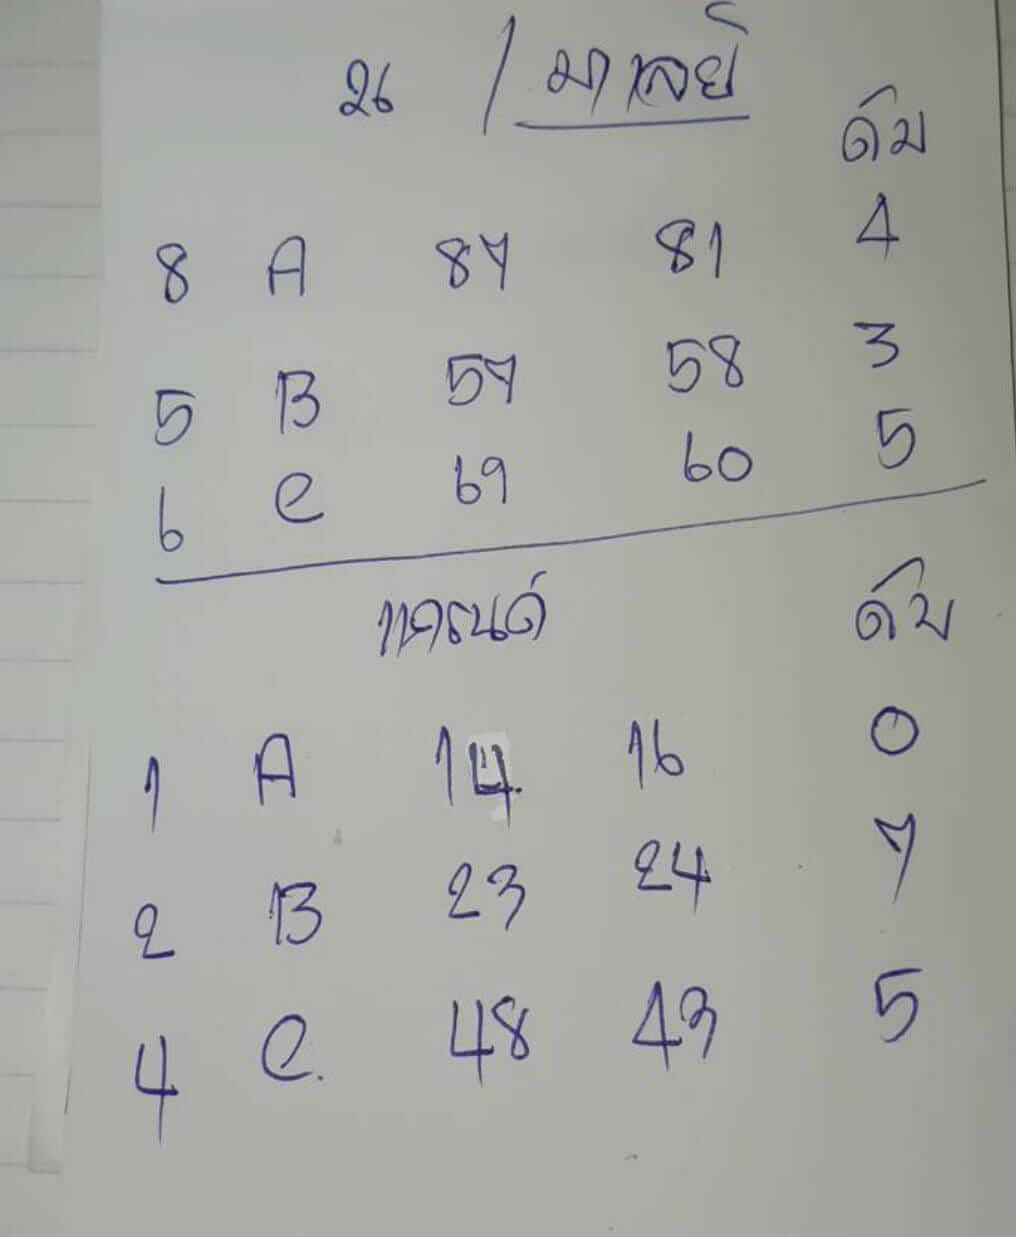 26 / มาเลย์
ดับ
8 A 87 81 4
5 B 57 58 3
6 C 69 60 5
แคนด์ ดับ
1 A 14 16 0
2 B 23 24 7
4 C. 48 43 5